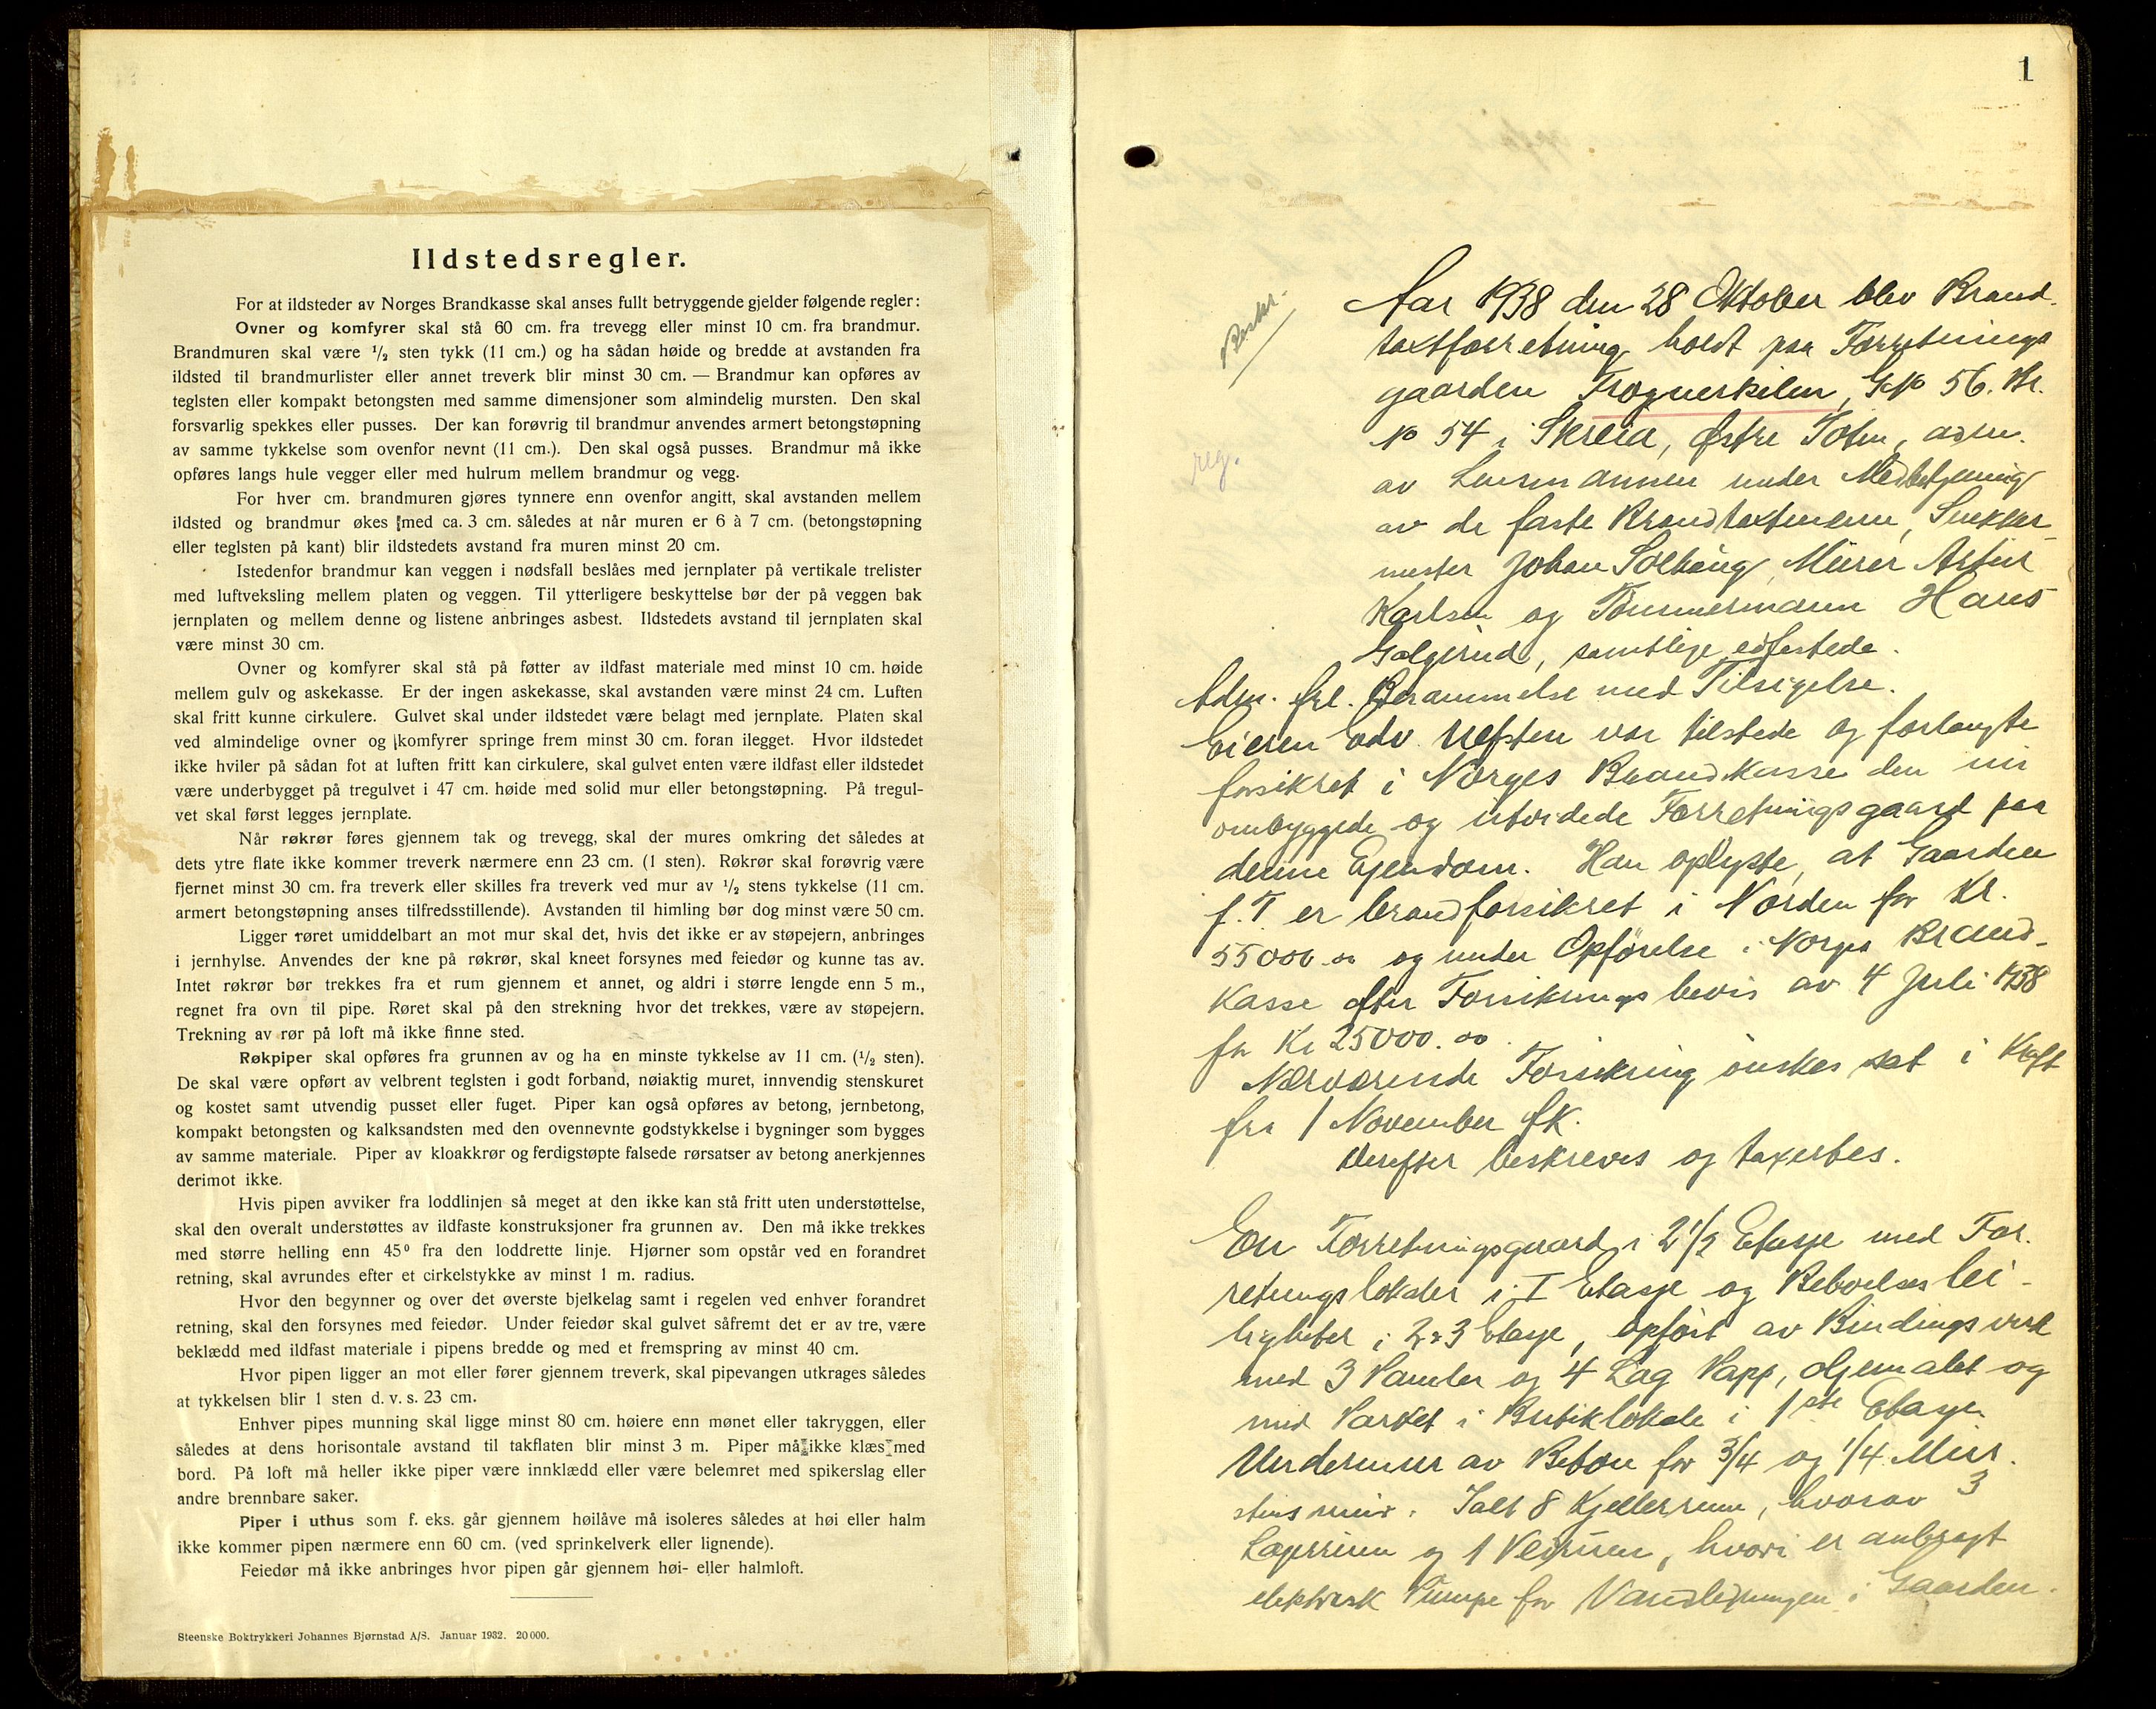 Ildstedsregler.
For at ildsteder av Norges Brandkasse skal anses fullt betryggende gjelder følgende regler:
Ovner og komfyrer skal stå 60 cm. fra trevegg eller minst 10 cm. fra brandmur.
Brandmuren skal være 1/2 sten tykk (11 cm.) og ha sådan høide og bredde at avstanden fra
ildsted til brandmurlister eller annet treverk blir minst 30 cm. — Brandmur kan opføres av
teglsten eller kompakt betongsten med samme dimensjoner som almindelig mursten. Den skal
forsvarlig spekkes eller pusses. Der kan forøvrig til brandmur anvendes armert betongstøpning
av samme tykkelse som ovenfor nevnt (11 cm.). Den skal også pusses. Brandmur må ikke
opføres langs hule vegger eller med hulrum mellem brandmur og vegg.
For hver cm. brandmuren gjøres tynnere enn ovenfor angitt, skal avstanden mellem
ildsted og brandmur økes med ca. 3 cm. således at når muren er 6 à 7 cm. (betongstøpning
eller teglsten på kant) blir ildstedets avstand fra muren minst 20 cm.
Istedenfor brandmur kan veggen i nødsfall beslåes med jernplater på vertikale trelister
med luftveksling mellem platen og veggen. Til ytterligere beskyttelse bør der på veggen bak
jernplaten og mellem denne og listene anbringes asbest. Ildstedets avstand til jernplaten skal
være minst 30 cm.
Ovner og komfyrer skal stå på føtter av ildfast materiale med minst 10 cm. høide
mellem gulv og askekasse. Er der ingen askekasse, skal avstanden være minst 24 cm. Luften
skal fritt kunne cirkulere. Gulvet skal under ildstedet være belagt med jernplate. Platen skal
ved almindelige ovner og komfyrer springe frem minst 30 cm. foran ilegget. Hvor ildstedet
ikke hviler på sådan fot at luften fritt kan cirkulere, skal gulvet enten være ildfast eller ildstedet
være underbygget på tregulvet i 47 cm. høide med solid mur eller betongstøpning. På tregul-
vet skal først legges jernplate.
Når røkrør føres gjennem tak og trevegg, skal der mures omkring det således at
dets ytre flate ikke kommer treverk nærmere enn 23 cm. (1 sten). Røkrør skal forøvrig være
fjernet minst 30 cm. fra treverk eller skilles fra treverk ved mur av 1/2 stens tykkelse (11 cm.
armert betongstøpning anses tilfredsstillende). Avstanden til himling bør dog minst være 50 cm.
Ligger røret umiddelbart an mot mur skal det, hvis det ikke er av støpejern, anbringes
i jernhylse. Anvendes der kne på røkrør, skal kneet forsynes med feiedør og kunne tas av.
Intet røkrør bør trekkes fra et rum gjennem et annet, og aldri i større lengde enn 5 m.,
regnet fra ovn til pipe. Røret skal på den strekning hvor det trekkes, være av støpejern.
Trekning av rør på loft må ikke finne sted.
Røkpiper skal opføres fra grunnen av og ha en minste tykkelse av 11 cm. (1/2 sten).
De skal være opført av velbrent teglsten i godt forband, nøiaktig muret, innvendig stenskuret
og kostet samt utvendig pusset eller fuget. Piper kan også opføres av betong, jernbetong,
kompakt betongsten og kalksandsten med den ovennevnte godstykkelse i bygninger som bygges
av samme materiale. Piper av kloakkrør og ferdigstøpte falsede rørsatser av betong anerkjennes
derimot ikke.
Hvis pipen avviker fra loddlinjen så meget at den ikke kan stå fritt uten understøttelse,
skal den overalt understøttes av ildfaste konstruksjoner fra grunnen av. Den må ikke trekkes
med større helling enn 45° fra den loddrette linje. Hjørner som opstår ved en forandret
retning, skal avrundes efter et cirkelstykke av minst 1 m. radius.
Hvor den begynner og over det øverste bjelkelag samt i regelen ved enhver forandret
retning, skal den forsynes med feiedør. Under feiedør skal gulvet såfremt det er av tre, være
beklædd med ildfast materiale i pipens bredde og med et fremspring av minst 40 cm.
Hvor pipen ligger an mot eller fører gjennem treverk, skal pipevangen utkrages således
at tykkelsen blir 1 sten d. v. s. 23 cm.
Enhver pipes munning skal ligge minst 80 cm. høiere enn mønet eller takryggen, eller
således at dens horisontale avstand til takflaten blir minst 3 m. Piper må ikke klæs med
bord. På loft må heller ikke piper være innklædd eller være belemret med spikerslag eller
andre brennbare saker.
Piper i uthus som f. eks. går gjennem høilåve må isoleres således at høi eller halm
ikke kommer pipen nærmere enn 60 cm. (ved sprinkelverk eller lignende).
Feiedør må ikke anbringes hvor pipen går gjennem høi- eller halmloft.
Steenske Boktrykkeri Johannes Bjørnstad A/S. Januar 1932. 20 000.
1
Aar 1938 den 28 Oktober blev Brand-
taxtforretning holdt paa Forretnings
gaarden Frognerkilen, G.No 56. Br.
No 54 i Skreia, Østre Toten, adm.
reg.
av Lensmannen under Medbetjening
av de faste Brandtaxtmenn, Snekker-
mester Johan Solhaug, Murer Artur
Karlsen og Tømmermann Hans
Galgerud, samtlige edfæstede.
Adm. frl. Berammelse med Tilsigelse.
Eieren Edv. Ulfsten var tilstede og forlangte
forsikret i Norges Brandkasse den nu
ombyggede og utvidede Forretningsgaard paa
denne Ejendom. Han oplyste, at Gaarden
f. T. er brandforsikret i Norden for Kr.
55000.00 og under Opførelse i Norges Brand-
Kasse efter Forsikrings bevis av 4 Juli 1938
for Kr 25000.00.
Nærværende Forsikring ønskes sat i Kraft
fra 1 November fk.
Derefter beskreves og taxertes.
En Forretningsgaard i 2 1/2 Etasje med For.
retningslokaler i I Etasje og Beboelses lei-
ligheter i 2 & 3 Etasje, opført av Bindingsverk
med 3 Paneler og 4 Lag Papp, oljemalet og
med Parket i Butiklokale i 1ste Etasje.
Undermur av Beton for 3/4 og 1/4 Mur.
stens mur. Ialt 8 Kjellerrum, hvorav 3
Lagerrum og 1 , hvori er anbragt
elektrisk Pumpe for Vandledningen i Gaarden.